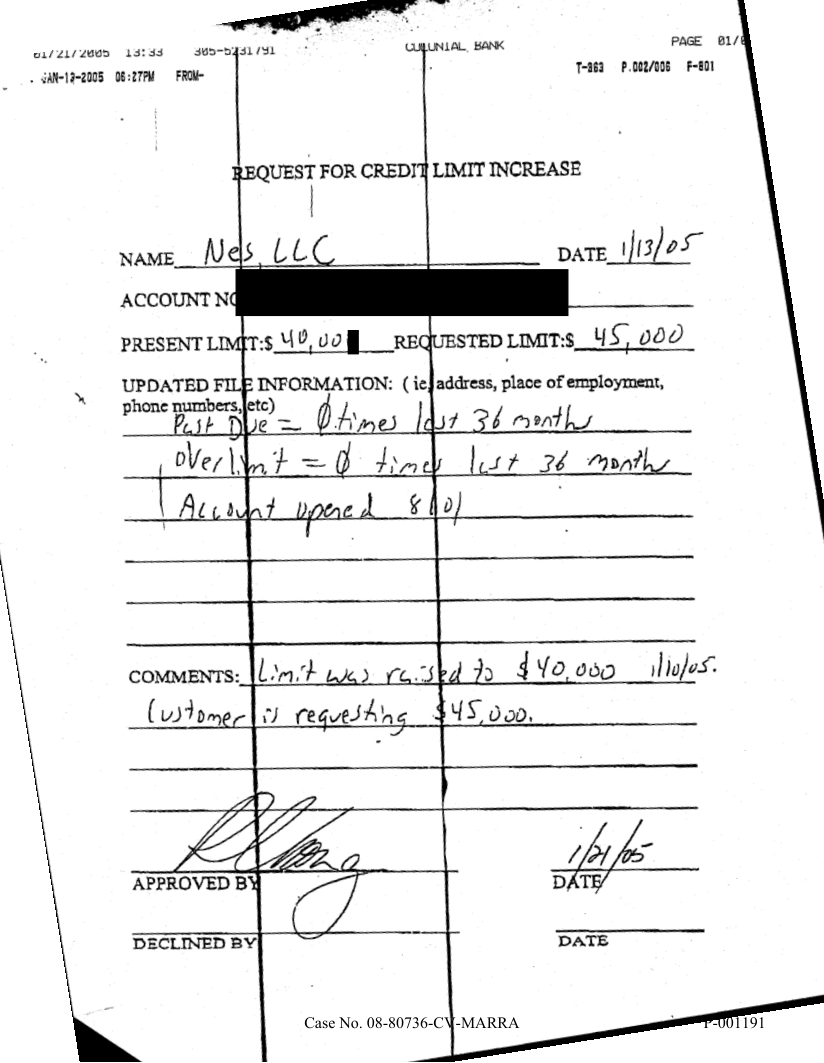 01/21/2005 13:33 305-5231791 COLONIAL BANK PAGE 01/
JAN-13-2005 06:27PM FROM- T-363 P.002/006 F-801
REQUEST FOR CREDIT LIMIT INCREASE
NAME Nes, LLC DATE 1/13/05
ACCOUNT NO
PRESENT LIMIT:$ 40,00 REQUESTED LIMIT:$ 45,000
UPDATED FILE INFORMATION: ( ie, address, place of employment,
phone numbers, etc)
Past Due = 0 times last 36 months
Overlimit = 0 times last 36 months
Account opened 8/01
COMMENTS: Limit was raised to $40,000 1/10/05.
Customer is requesting $45,000.
1/21/05
APPROVED BY DATE
DECLINED BY DATE
Case No. 08-80736-CV-MARRA P-001191